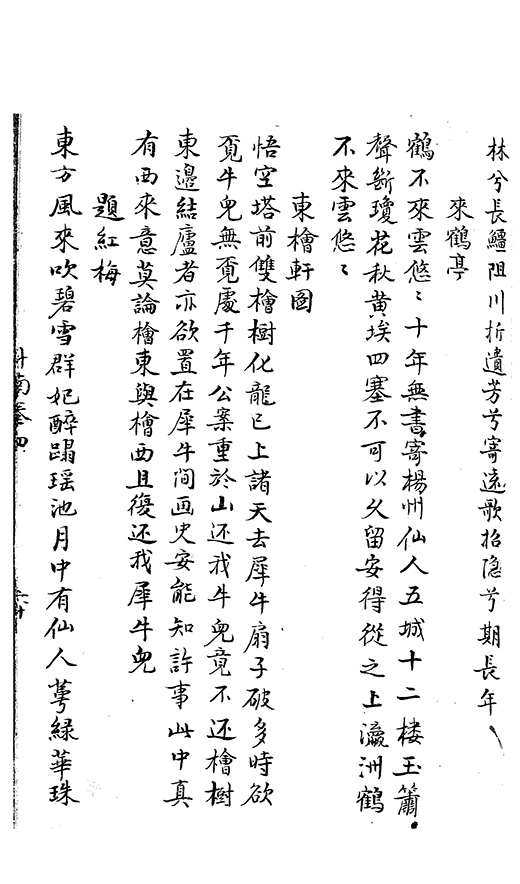 林兮長疆阻川折遺芳兮寄遠歌招隐兮期長年
來鶴亭
鶴不來雲悠〻十年無書寄楊州仙人五城十二楼玉簫
聲斷瓊花秋黄埃四塞不可以久留安得從之上瀛洲鶴
不來雲悠〻
東檜軒圖
悟空塔前雙檜樹化龍已上諸天去犀牛扇子破多時欲
覔牛兒無覔處千年公案重於山还我牛兒竟不还檜樹
東邊結廬者亦欲置在犀牛間画史安能知許事此中真
有西來意莫論檜東與檜西且復还我犀牛兒
題紅梅
東方風來吹碧雪群妃醉蹋瑶池月中有仙人萼緑華珠